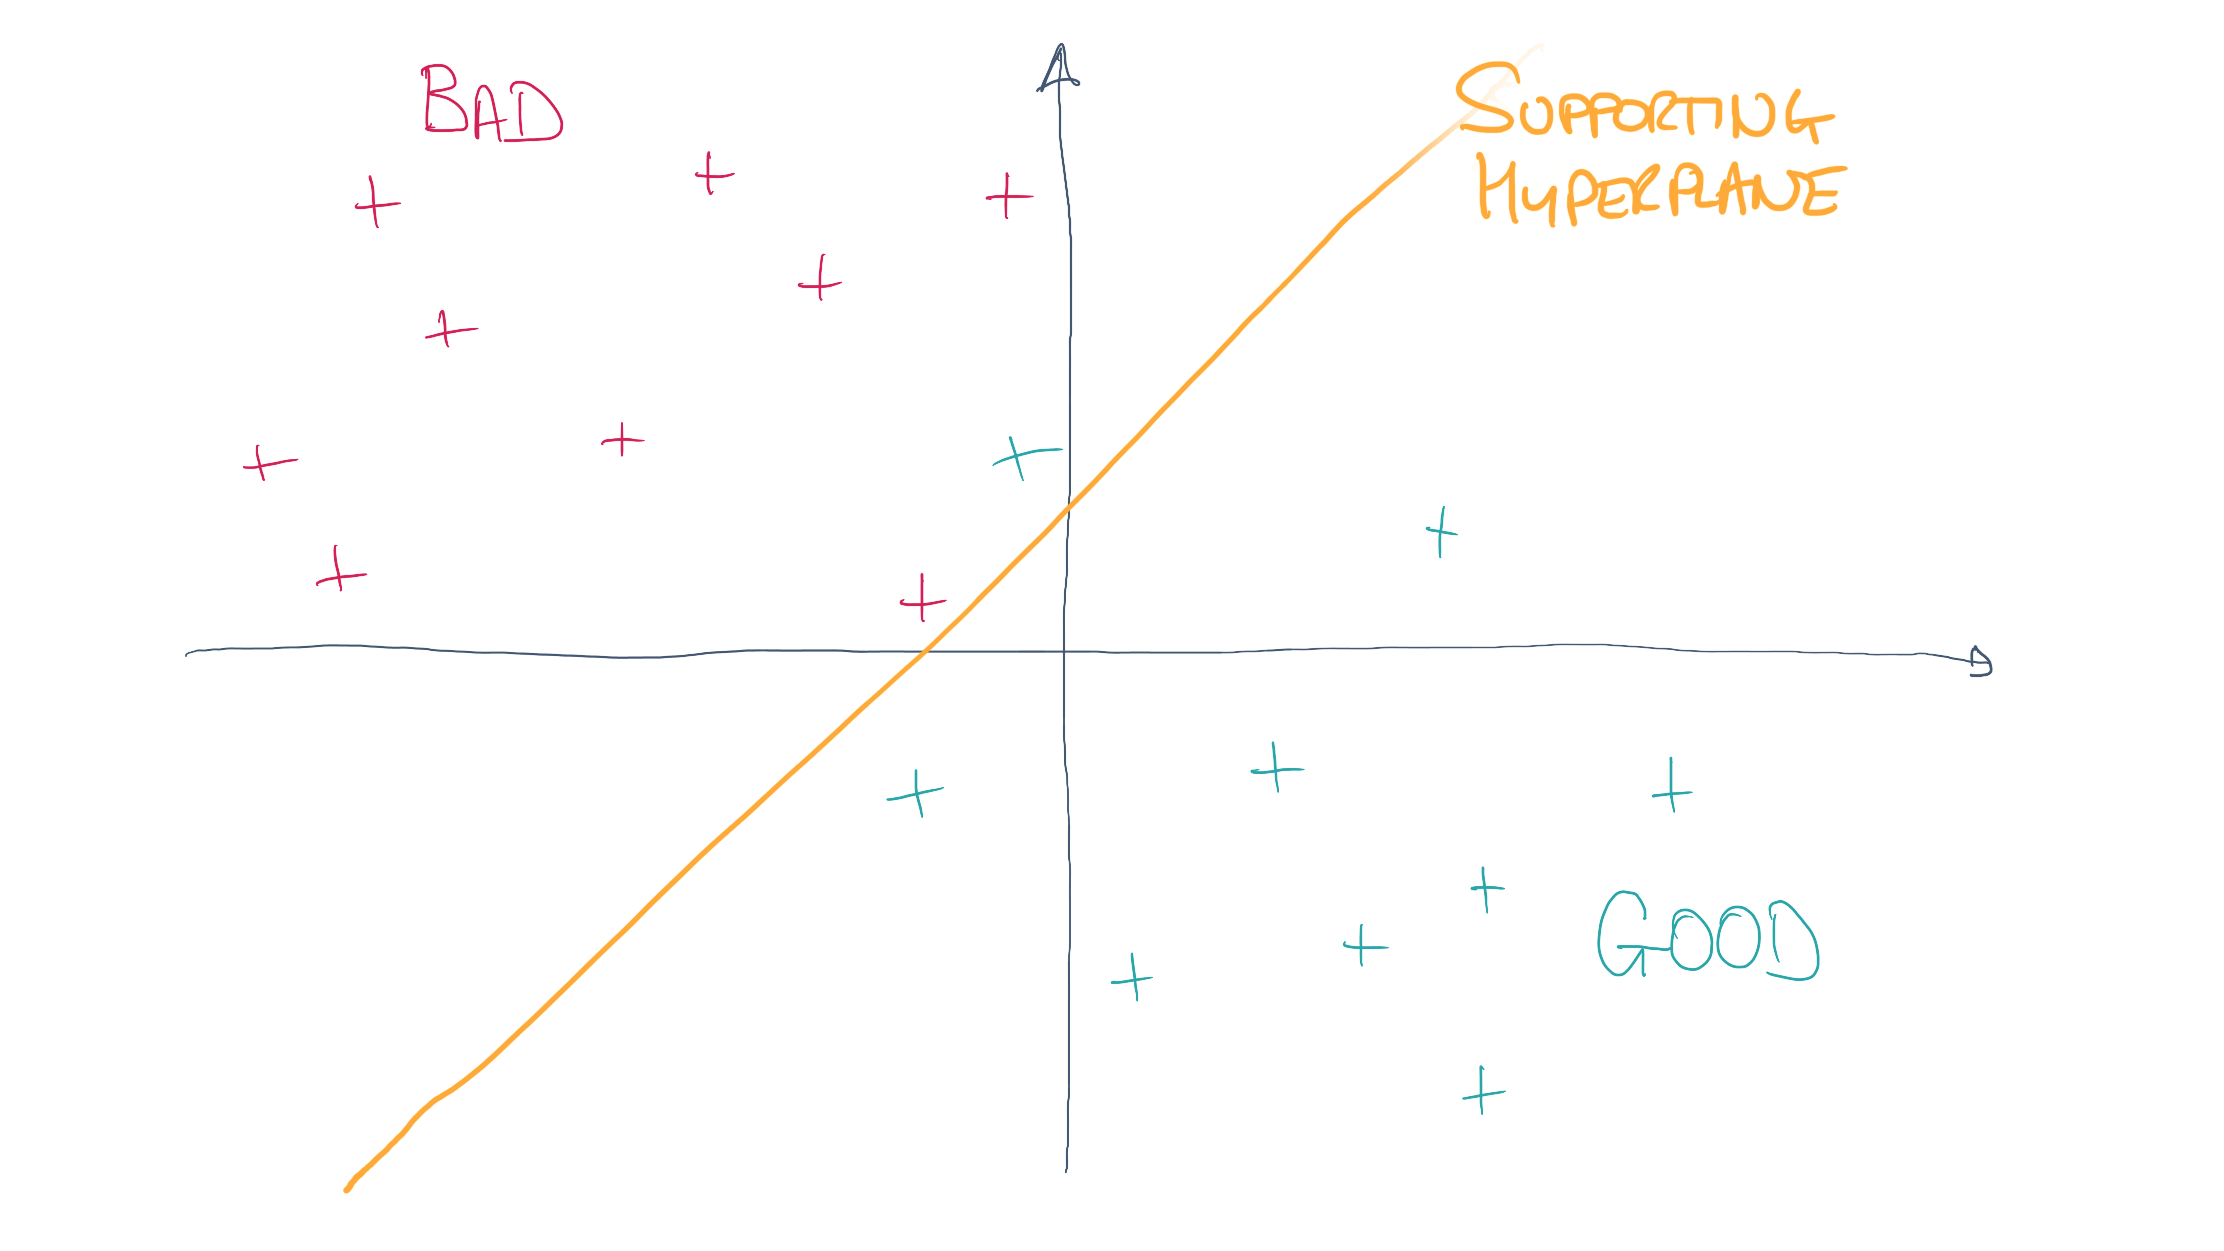 BAD
SUPPORTING
HYPERPLANE
GOOD